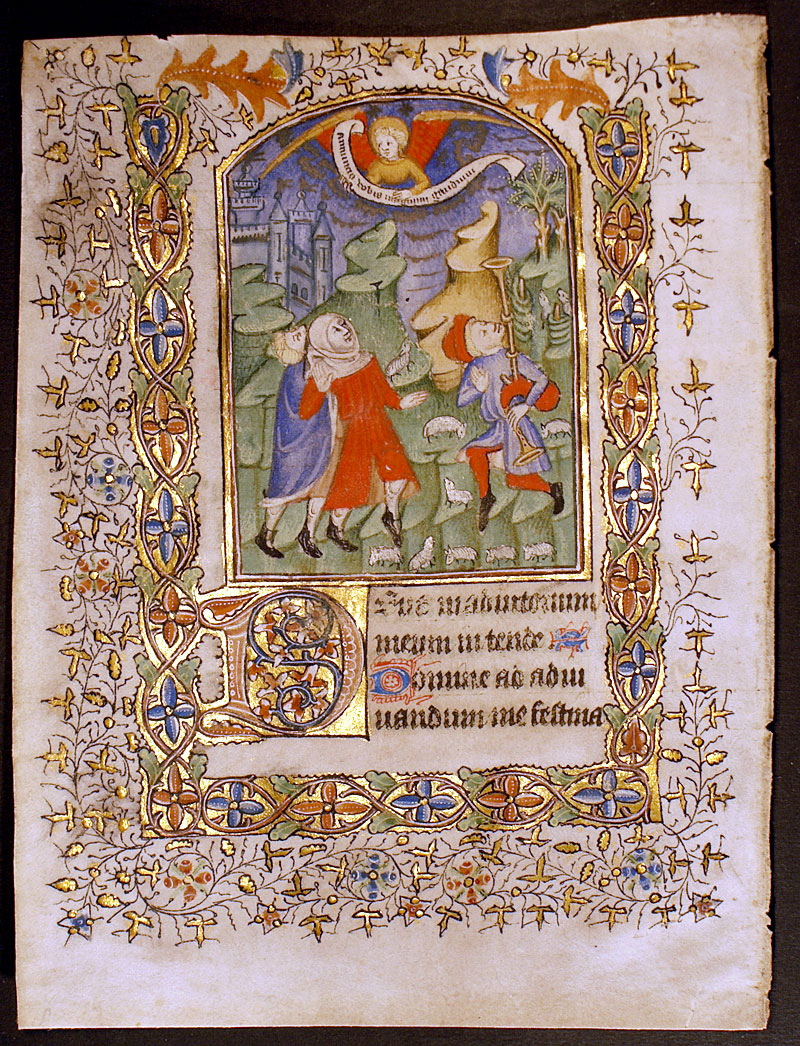 Annuncio vobis magnum gaudium
Deus in adiutorium
meum in tende
Domine ad adiu
uandum me festina